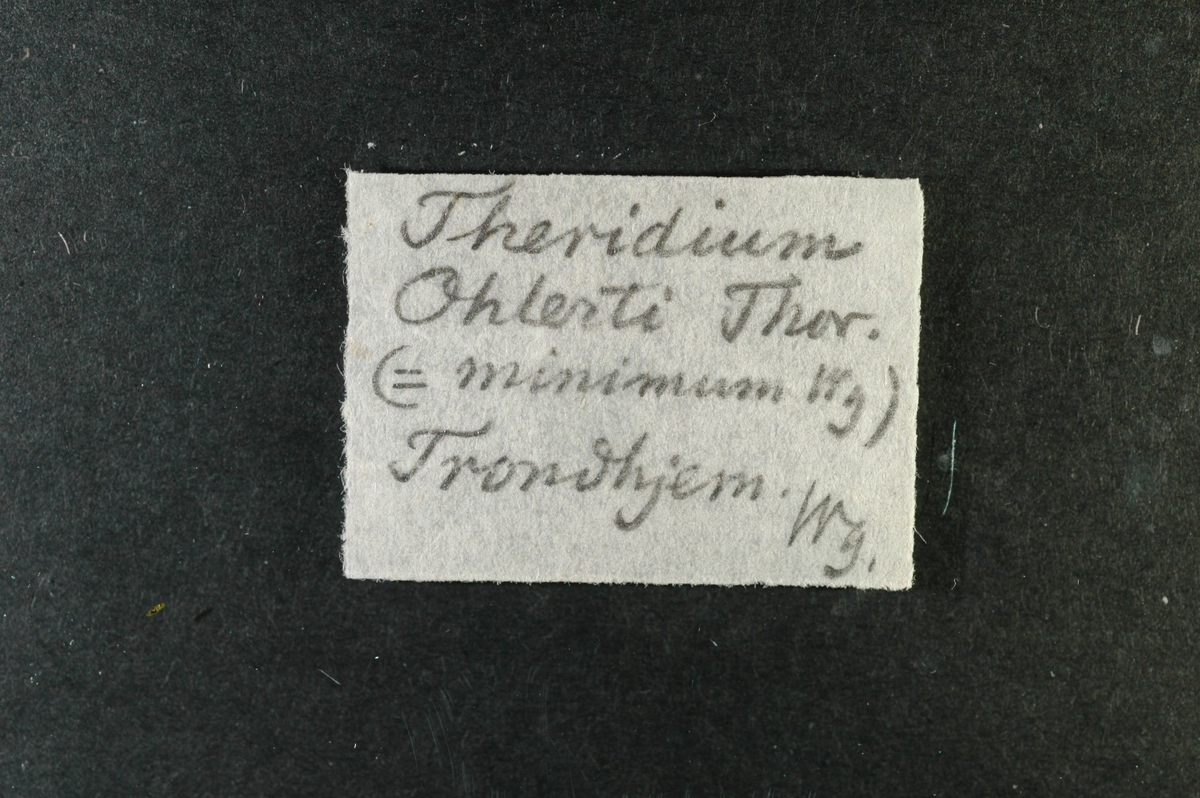 Theridium
Ohlerti Thor.
(= minimum Wg)
Trondhjem.
Wg.